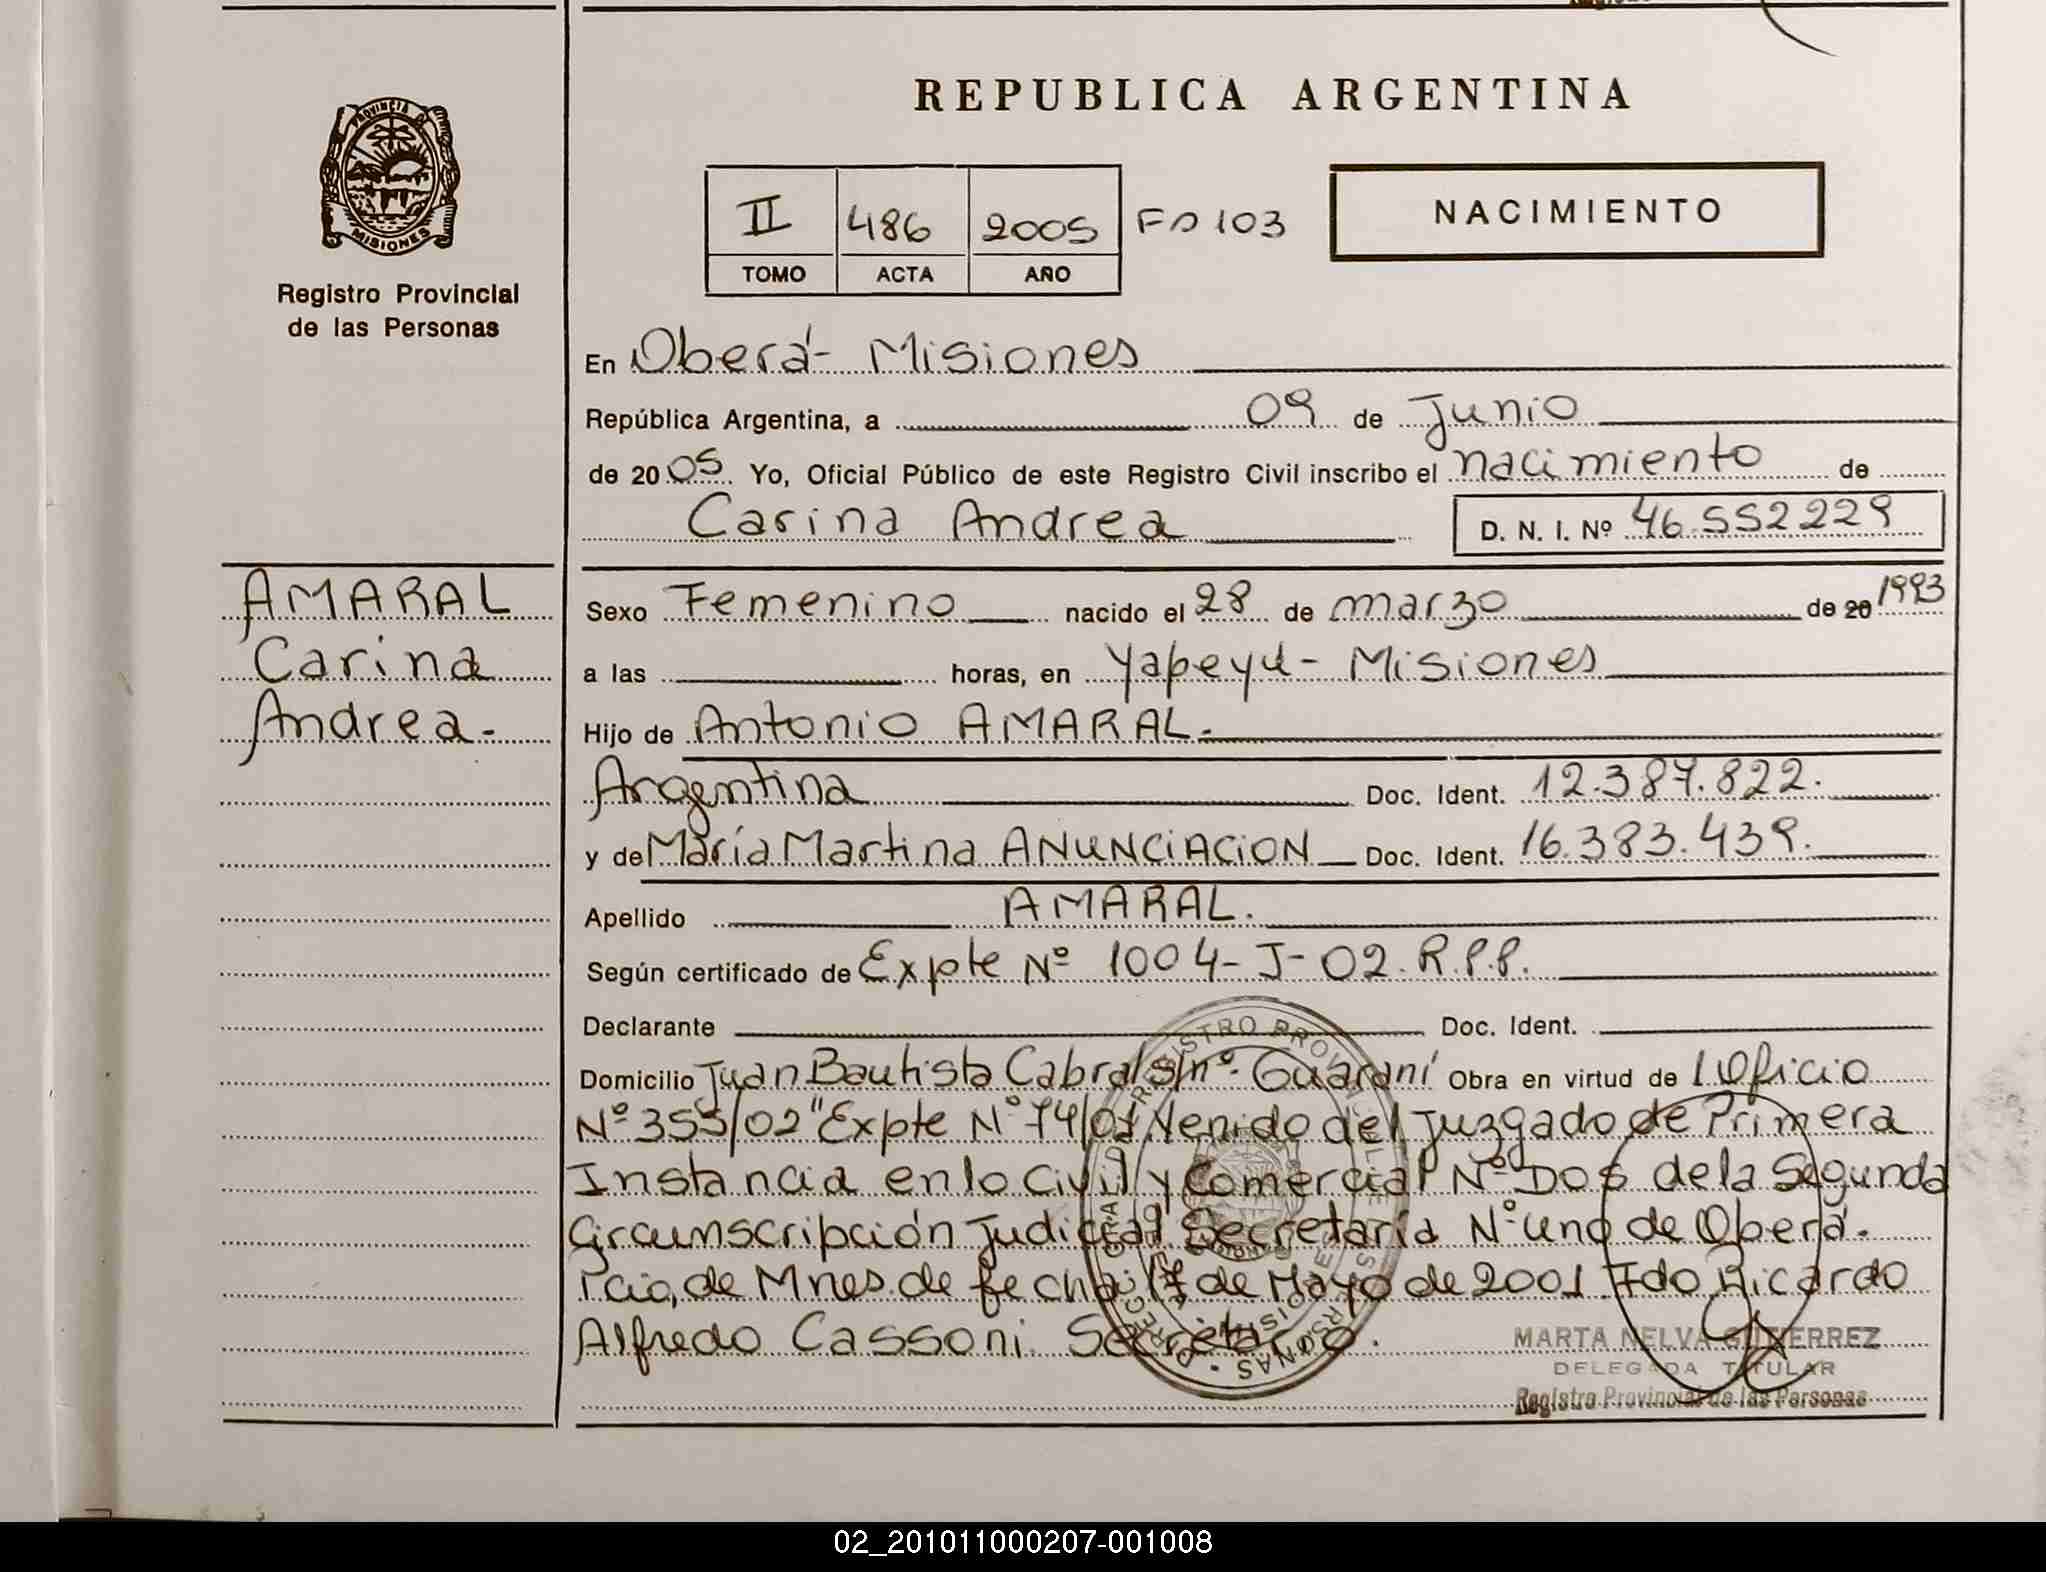 REPUBLICA ARGENTINA
PROVINCIA DE
MISIONES
Registro Provincial
de las Personas
II 486 2005 Fo 103
TOMO ACTA AÑO
NACIMIENTO
En Oberá - Misiones
República Argentina, a 09 de Junio
de 20 05 Yo, Oficial Público de este Registro Civil inscribo el nacimiento de
Carina Andrea D. N. I. Nº 46.552229
AMARAL
Carina
Andrea.-
Sexo Femenino nacido el 28 de marzo de 20 1993
a las horas, en Yapeyú - Misiones
Hijo de Antonio AMARAL.-
Argentina Doc. Ident. 12.387.822.
y de María Martina ANUNCIACION Doc. Ident. 16.383.439.
Apellido AMARAL.
Según certificado de Expte Nº 1004-J-02. R.P.P.
Declarante Doc. Ident.
Domicilio Juan Bautista Cabral s/nº. Guaraní Obra en virtud de Oficio
Nº 355/02 "Expte Nº 74/01 Venido del Juzgado de Primera
Instancia en lo Civil y Comercial Nº Dos de la Segunda
Circunscripción Judicial Secretaría Nº uno de Oberá.
Pcia. de Mnes. de fecha 17 de Mayo de 2001 Fdo Ricardo
Alfredo Cassoni Secretario.
MARTA NELVA GUTIERREZ
DELEGADA TITULAR
Registro Provincial de las Personas
02_201011000207-001008